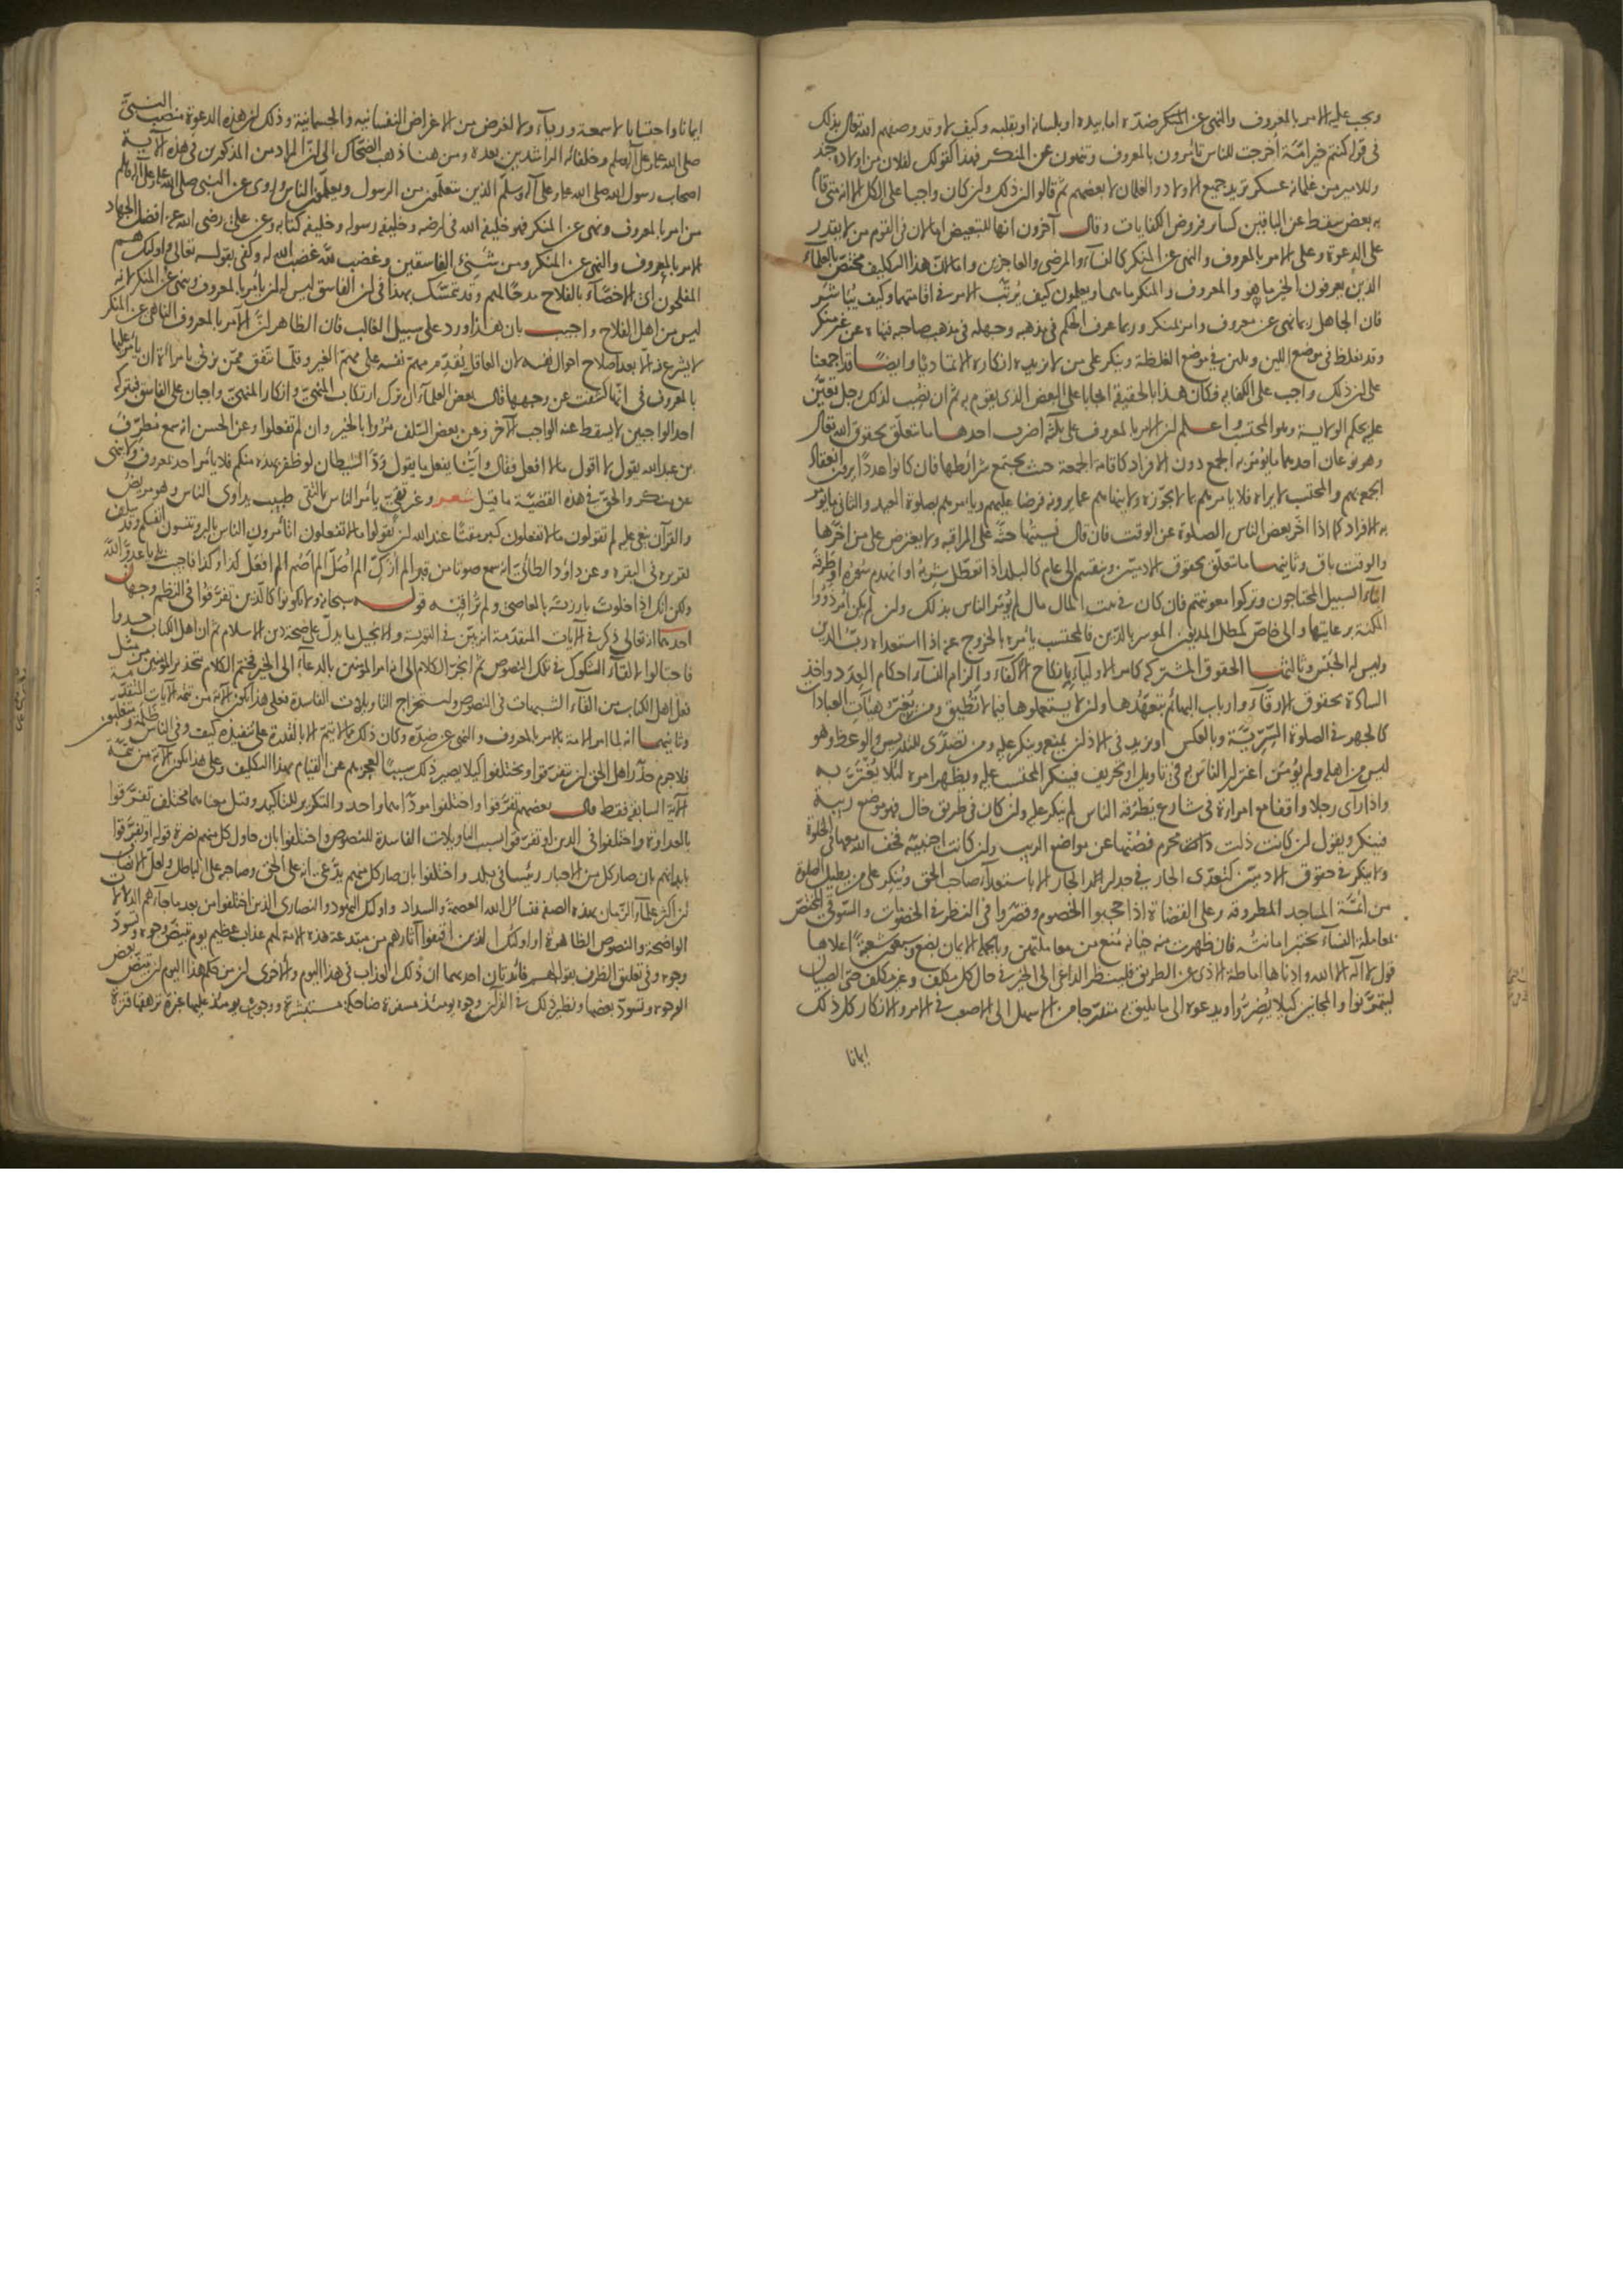 ويجب عليه الامر بالمعروف والنهى عن المنكر ضده اما بيده او بلسانه او بقلبه وكيف لا وقد وصفهم الله تعالى بذلك
فى قوله كنتم خير امّة أخرجت للناس تأمرون بالمعروف وتنهون عن المنكر فهذا كقولك لفلان من اولاده جند
وللامير من غلمانه عسكر تريد جميع الاولاد والغلمان لا بعضهم ثم قالوا ان ذلك وان كان واجبا على الكل الا انه متى قام
به بعض سقط عن الباقين كسائر فروض الكفايات وقال آخرون انها للتبعيض اما لان فى القوم من لا يقدر
على الدعوة وعلى الامر بالمعروف والنهى عن المنكر كالنسآء والمرضى والعاجزين واما لان هذا التكليف مختص بالعلمآء
الذين يعرفون الخير ما هو والمعروف والمنكر ما هما ويعلمون كيف يُرتّب الامر فى اقامتهما وكيف يُباشر
فان الجاهل ربما نهى عن معروف وامر بمنكر وربما عرف الحكم فى مذهبه وجهله فى مذهب صاحبه فنهاه عن غير منكر
وقد يغلظ فى موضع اللين ويلين فى موضع الغلظة وينكر على من لا يزيده انكاره الا تماديا وايضا قد اجمعنا
على ان ذلك واجب على الكفاية فكان هذا بالحقيقة ايجابا على البعض الذى يقوم به ثم ان نصب لذلك رجل تعيّن
عليه بحكم الولاية وهو المحتسب واعلم ان الامر بالمعروف على ثلثة اضرب احدها ما يتعلّق بحقوق الله تعالى
وهو نوعان احدهما ما يؤمر به الجمع دون الافراد كاقامة الجمعة حيث يجتمع شرائطها فان كانوا عددًا يرون انعقاد
الجمعة بهم والمحتسب لا يراه فلا يأمرهم بما لا يجوّزه ولا ينهاهم عما يرونه فرضا عليهم ويأمرهم بصلوة العيد والثانى ما يؤمر
به الافراد كما اذا اخّر بعض الناس الصلوة عن الوقت فان قال نسيتها حثّه على المراقبة ولا يعترض على من اخّرها
والوقت باق وثانيها ما تعلّق بحقوق الادميين وينقسم الى عام كالبلد اذا تعطّل شربه او انهدم سوره او طرقه
ابنآء السبيل المحتاجون وتركوا معونتهم فان كان فى بيت المال مال لم يؤمر الناس بذلك وان لم يكن أمر ذوو
المكنة برعايتها والى خاصّ كمطل المديون الموسر بالدّين فالمحتسب يأمره بالخروج عنه اذا استعداه ربّ الدين
وليس له الحبس وثالثها الحقوق المشتركة كامر الاوليآء بانكاح الأكفآء والزام النسآء احكام العِدَد واخذ
السادة بحقوق الارقّآء وارباب البهائم بتعهّدها وان لا يستعملوها فيما لا تُطيق ومن يُغيّر هيآت العبادات
كالجهر فى الصلوة السّرّيّة وبالعكس او يزيد فى الاذان يمنع وينكر عليه ومن تصدّى للتدريس والوعظ وهو
ليس من اهله ولم يُؤمن اغترار الناس به فى تاويل او تحريف فينكر المحتسب عليه ويظهر امره لئلا يُغْتَرّ به
واذا رأى رجلا واقفا مع امراة فى شارع يَطرُقه الناس لم ينكر عليه وان كان فى طريق خال فهو موضع ريبة
فينكر ويقول ان كانت ذات محرم فصُنها عن مواضع الريب وان كانت اجنبيّة فخف الله معها فى الخلوة
ولا ينكر فى حقوق الادميّين كتعدّى الجار فى جدار الجار الا باستعدآء صاحب الحق ويُنكر على من يطيل الصلوة
من ائمّة المساجد المطروقة وعلى القضاة اذا حجبوا الخصوم وقصّروا فى النظر فى الخصومات والسّوقىّ المختصّ
بمعاملة النسآء يختبر امانته فان ظهرت منه خيانة مُنع من معاملتهن وبالجملة الايمان بضع وسبعون شعبةً اعلاها
قول لا اله الا الله وادناها اماطة الاذى عن الطريق فلينظر الداعى الى الخير فى حال كل مكلف وغير مكلف حتى الصبيان
ليتمرّنوا والمجانين كيلا يُضِرّوا ويدعوه الى ما يليق به متدرّجا من الاسهل الى الاصعب فى الامر والانكار كل ذلك
ايمانا
ايمانا واحتسابا لا سمعة وريآء ولا لغرض من الاغراض النفسانية والجسمانية وذلك ان هذه الدعوة منصب النبىّ
صلى الله عليه وعلى آله وسلم وخلفائه الراشدين بعده ومن هنا ذهب الضحّاك الى انّ المراد من المذكورين فى هذه الآية
اصحاب رسول الله صلى الله عليه وعلى آله وسلّم الذين يتعلّمون من الرسول ويعلّمون الناس وروى عن النبى صلى الله عليه وعلى آله وسلم
من امر بالمعروف ونهى عن المنكر فهو خليفة الله فى ارضه وخليفة رسوله وخليفة كتابه وعن علىّ رضى الله عنه افضل الجهاد
الامر بالمعروف والنهى عن المنكر ومن شَنِئَ الفاسقين وغضب للّه غضب الله له وكفى بقوله تعالى واولئك هم
المفلحون أى الاخصّآء بالفلاح مدحًا لهم وقد تمسّك بهذا فى ان الفاسق ليس له ان يأمر بالمعروف وينهى عن المنكر لانه
ليس من اهل الفلاح واجيب بان هذا ورد على سبيل الغالب فان الظاهر انّ الآمر بالمعروف الناهى عن المنكر
لا يشرع فيه الا بعد اصلاح احوال نفسه لان العاقل يُقدّم مهمّ نفسه على مهمّ الغير وقلّما يتفق ممّن يزنى بامراة ان يأمرها
بالمعروف فى انّها كشفت عن وجهها قال بعض العلمآء ان ترك ارتكاب المنهىّ وانكار المنهىّ واجبان على الفاسق فبتركه
احد الواجبين لا يسقط عنه الواجب الآخر وعن بعض السّلف مُرُوا بالخير وان لم تفعلوا وعن الحسن انه سمع مطرّف
بن عبد الله يقول لا اقول ما لا افعل فقال وايّنا يفعل ما يقول وَدّ الشيطان لو ظفر بهذه منكم فلا يأمر احد بمعروف ولا ينهى
عن منكر والحقّ فى هذه القضيّة ما قيل شعر وغير تقىّ يأمر الناس بالتّقى طبيب يداوى الناس وهو مريض
والقرآن ينعى عليه لم تقولون ما لا تفعلون كبر مقتًا عند الله ان تقولوا ما لا تفعلون اتأمرون الناس بالبر وتنسون انفسكم وقد سلف
تقريره فى البقرة وعن داود الطائىّ انه سمع صوتا من قبر الم أُزكّ الم أُصلّ الم أصُم الم افعل كذا وكذا فاجيب بلى يا عدوّ الله
ولكن انك اذا خلوتَ بارزتَه بالمعاصى ولم تُراقبْه قوله سبحانه ولا تكونوا كالّذين تفرّقوا فى النظم وجهان
احدهما انه تعالى ذكر فى الآيات المتقدّمة انه بيّن فى التورية والانجيل ما يدلّ على صحّة دين الاسلام ثم ان اهل الكتاب حسدوا
فاحتالوا لالقآء الشكوك فى تلك النصوص ثم انجرّ الكلام الى ان امر المؤمنين بالدعآء الى الخير فختم الكلام بتحذير المؤمنين من مثل
فعل اهل الكتاب من القآء الشبهات فى النصوص واستخراج التاويلات الفاسدة فعلى هذا يكون الآية من تتمّة الآيات المتقدّمة
وثانيهما انه لما امر الامة بالامر بالمعروف والنهى عن ضدّه وكان ذلك مما لا يتمّ الا بالقدرة على تنفيذه كيف وفى الناس ظلمة ومتغلبون
فلا جرم حذّر اهل الحق ان يتفرّقوا ويختلفوا كيلا يصير ذلك سببًا لعجزهم عن القيام بهذا التكليف وعلى هذا تكون الآية من تتمّة
الآية السابقة فقط قال بعضهم تفرّقوا واختلفوا مؤدّاهما واحد والتكرير للتاكيد وقيل معناهما مختلف تفرّقوا
بالعداوة واختلفوا فى الدين او تفرّقوا بسبب التاويلات الفاسدة للنصوص واختلفوا بان حاول كل منهم نصرة قوله او تفرّقوا
بابدانهم بان صار كل من الاحبار رئيسا فى بلد واختلفوا بان صار كل منهم يدّعى انه على الحق وصاحبه على الباطل ولعلّ الانصاف
ان اكثر علمآء الزّمان بهذه الصفة فنسأل الله العصمة والسداد واولئك اليهود والنصارى الذين اختلفوا من بعد ما جآءهم الدلالات
الواضحة والنصوص الظاهرة او اولئك الذين اقتفوا آثارهم من مبتدعة هذه الامة لهم عذاب عظيم يوم تبيضّ وجوه وتسودّ
وجوه وفى تعليق الظرف بقوله لهم فائدتان احديهما ان ذلك العذاب فى هذا اليوم والأخرى ان من حكم هذا اليوم ان تبيضّ بعض
الوجوه وتسودّ بعضها ونظير ذلك فى القرآن وجوه يومئذ مسفرة ضاحكة مستبشرة ووجوه يومئذ عليها غبرة ترهقها قترة